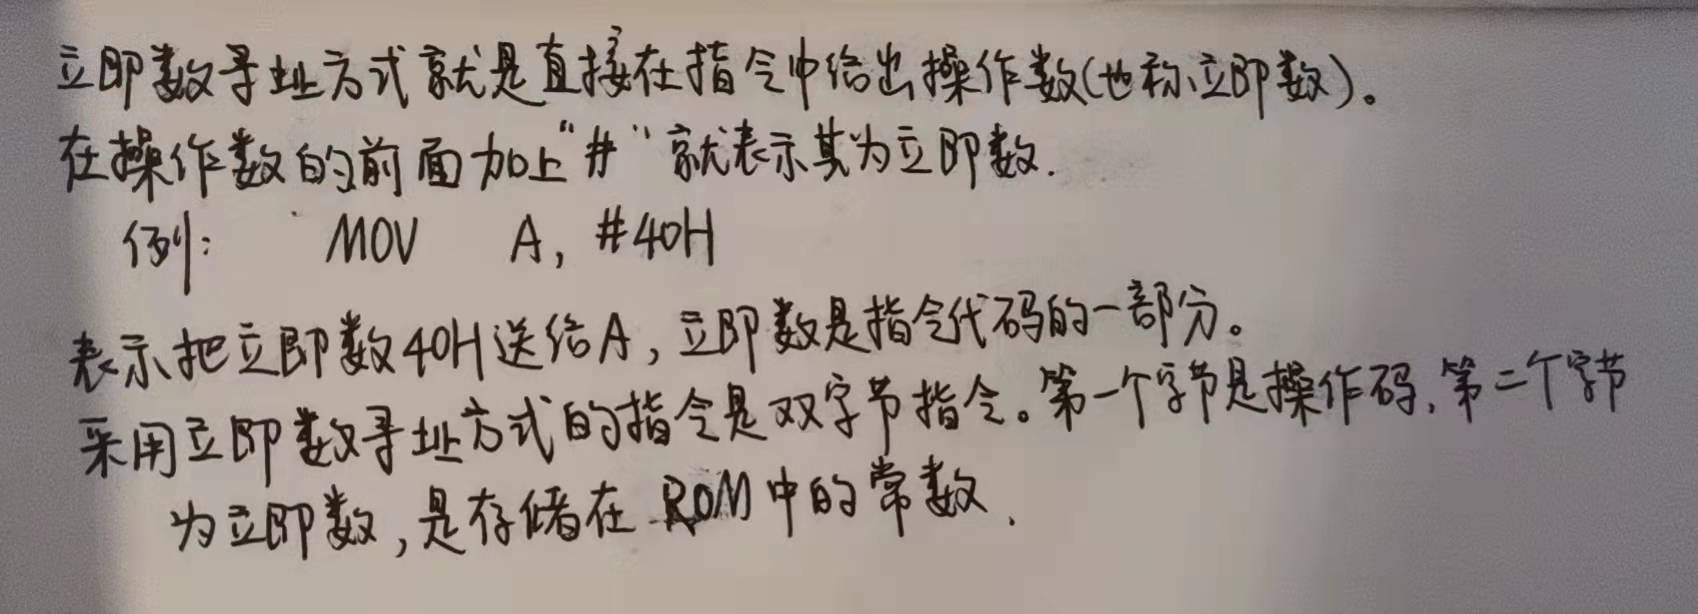 立即数寻址方式就是直接在指令中给出操作数(也称立即数)。
在操作数的前面加上“#”就表示其为立即数.
例: MOV A, #40H
表示把立即数40H送给A,立即数是指令代码的一部分。
采用立即数寻址方式的指令是双字节指令。第一个字节是操作码,第二个字节
为立即数,是存储在ROM中的常数.